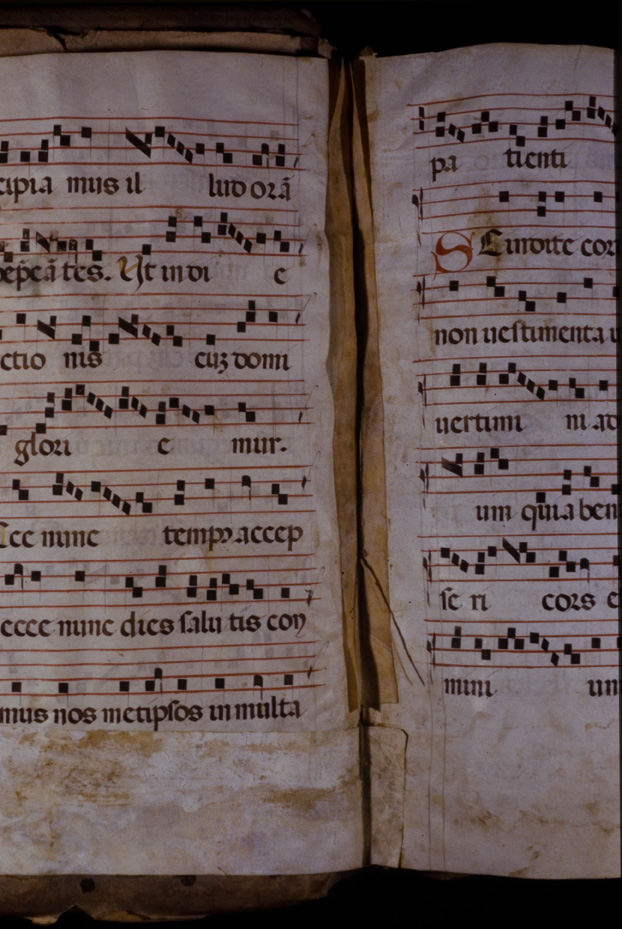 cipia mus il lud orā
tes. Ut in di e
ctio nis cuȝ domi
glori e mur.
Ecce nunc tempꝰ accep
ecce nunc dies salu tis coꝫ
mus nos metipsos in multa
pa tienti
Scindite cor
non uestimenta u
uertimi ni ad
um quia ben
se ri cors e
mini um